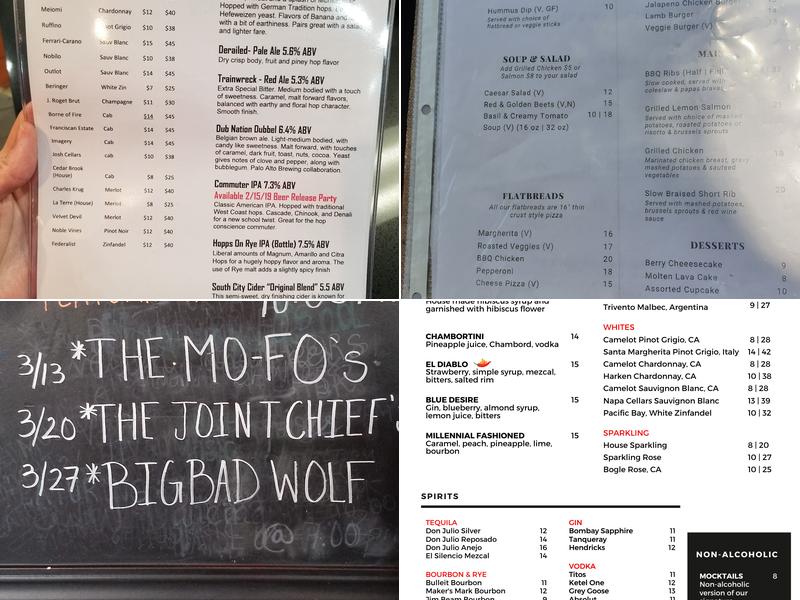 Meiomi Chardonnay $12 $40
Ruffino Pinot Grigio $10 $38
Ferrari-Carano Sauv Blanc $15 $45
Nobilo Sauv Blanc $10 $38
Outlot Sauv Blanc $14 $45
Beringer White Zin $7 $25
J. Roget Brut Champagne $11 $30
Borne of Fire Cab $14 $45
Franciscan Estate Cab $14 $45
Imagery Cab $14 $45
Josh Cellars cab $10 $38
Cedar Brook
(House) Cab $8 $25
Charles Krug Merlot $12 $40
La Terre (House) Merlot $8 $25
Velvet Devil Merlot $12 $40
Noble Vines Pinot Noir $12 $40
Federalist Zinfandel $12 $40
Hopped with German Tradition hops.
Hefeweizen yeast. Flavors of Banana and
with a bit of earthiness. Pairs great with a salad
and lighter fare.
Derailed- Pale Ale 5.6% ABV
Dry crisp body, fruit and piney hop flavor
Trainwreck - Red Ale 5.3% ABV
Extra Special Bitter. Medium bodied with a touch
of sweetness. Caramel, malt forward flavors,
balanced with earthy and floral hop character.
Smooth finish.
Dub Nation Dubbel 6.4% ABV
Belgian brown ale. Light-medium bodied, with
candy like sweetness. Malt forward, with touches
of caramel, dark fruit, toast, nuts, cocoa. Yeast
gives notes of clove and pepper, along with
bubblegum. Palo Alto Brewing collaboration.
Commuter IPA 7.3% ABV
Available 2/15/19 Beer Release Party
Classic American IPA. Hopped with traditional
West Coast hops. Cascade, Chinook, and Denali
for a new school twist. Great for the hop
conscience commuter.
Hopps On Rye IPA (Bottle) 7.5% ABV
Liberal amounts of Magnum, Amarillo and Citra
Hops for a hugely hoppy flavor and aroma. The
use of Rye malt adds a slightly spicy finish
South City Cider "Original Blend" 5.5 ABV
This semi-sweet, dry finishing cider is known for
Hummus Dip (V, GF) 10
Served with choice of
flatbread or veggie sticks
SOUP & SALAD
Add Grilled Chicken $5 or
Salmon $8 to your salad
Caesar Salad (V) 12
Red & Golden Beets (V,N) 15
Basil & Creamy Tomato 10 | 18
Soup (V) (16 oz | 32 oz)
FLATBREADS
All our flatbreads are 16" thin
crust style pizza
Margherita (V) 16
Roasted Veggies (V) 17
BBQ Chicken 20
Pepperoni 18
Cheese Pizza (V) 15
Jalapeno Chicken Burger
Lamb Burger
Veggie Burger (V)
BBQ Ribs (Half |
Slow cooked, served with
coleslaw & papas bravas
Grilled Lemon Salmon
Served with choice of mashed
potatoes, roasted potatoes or
risotto & brussels sprouts
Grilled Chicken
Marinated chicken breast, gravy
mashed potatoes & sauteed
vegetables
Slow Braised Short Rib 20
Served with mashed potatoes,
brussels sprouts & red wine
sauce
DESSERTS
Berry Cheeesecake 9
Molten Lava Cake 8
Assorted Cupcake 10
3/13 *THE MO-FO'S
3/20 *THE JOINT CHIEF'S
3/27 *BIGBAD WOLF
House made hibiscus syrup and
garnished with hibiscus flower
CHAMBORTINI 14
Pineapple juice, Chambord, vodka
EL DIABLO 15
Strawberry, simple syrup, mezcal,
bitters, salted rim
BLUE DESIRE 15
Gin, blueberry, almond syrup,
lemon juice, bitters
MILLENNIAL FASHIONED 15
Caramel, peach, pineapple, lime,
bourbon
Trivento Malbec, Argentina 9 | 27
WHITES
Camelot Pinot Grigio, CA 8 | 28
Santa Margherita Pinot Grigio, Italy 14 | 42
Camelot Chardonnay, CA 8 | 28
Harken Chardonnay, CA 10 | 38
Camelot Sauvignon Blanc, CA 8 | 28
Napa Cellars Sauvignon Blanc 13 | 39
Pacific Bay, White Zinfandel 10 | 32
SPARKLING
House Sparkling 8 | 20
Sparkling Rose 10 | 27
Bogle Rose, CA 10 | 25
SPIRITS
TEQUILA
Don Julio Silver 12
Don Julio Reposado 14
Don Julio Anejo 16
El Silencio Mezcal 14
BOURBON & RYE
Bulleit Bourbon 11
Maker's Mark Bourbon 12
Jim Beam Bourbon 9
GIN
Bombay Sapphire 11
Tanqueray 11
Hendricks 12
VODKA
Titos 11
Ketel One 12
Grey Goose 13
Absolut 11
NON-ALCOHOLIC
MOCKTAILS 8
Non-alcoholic
version of our